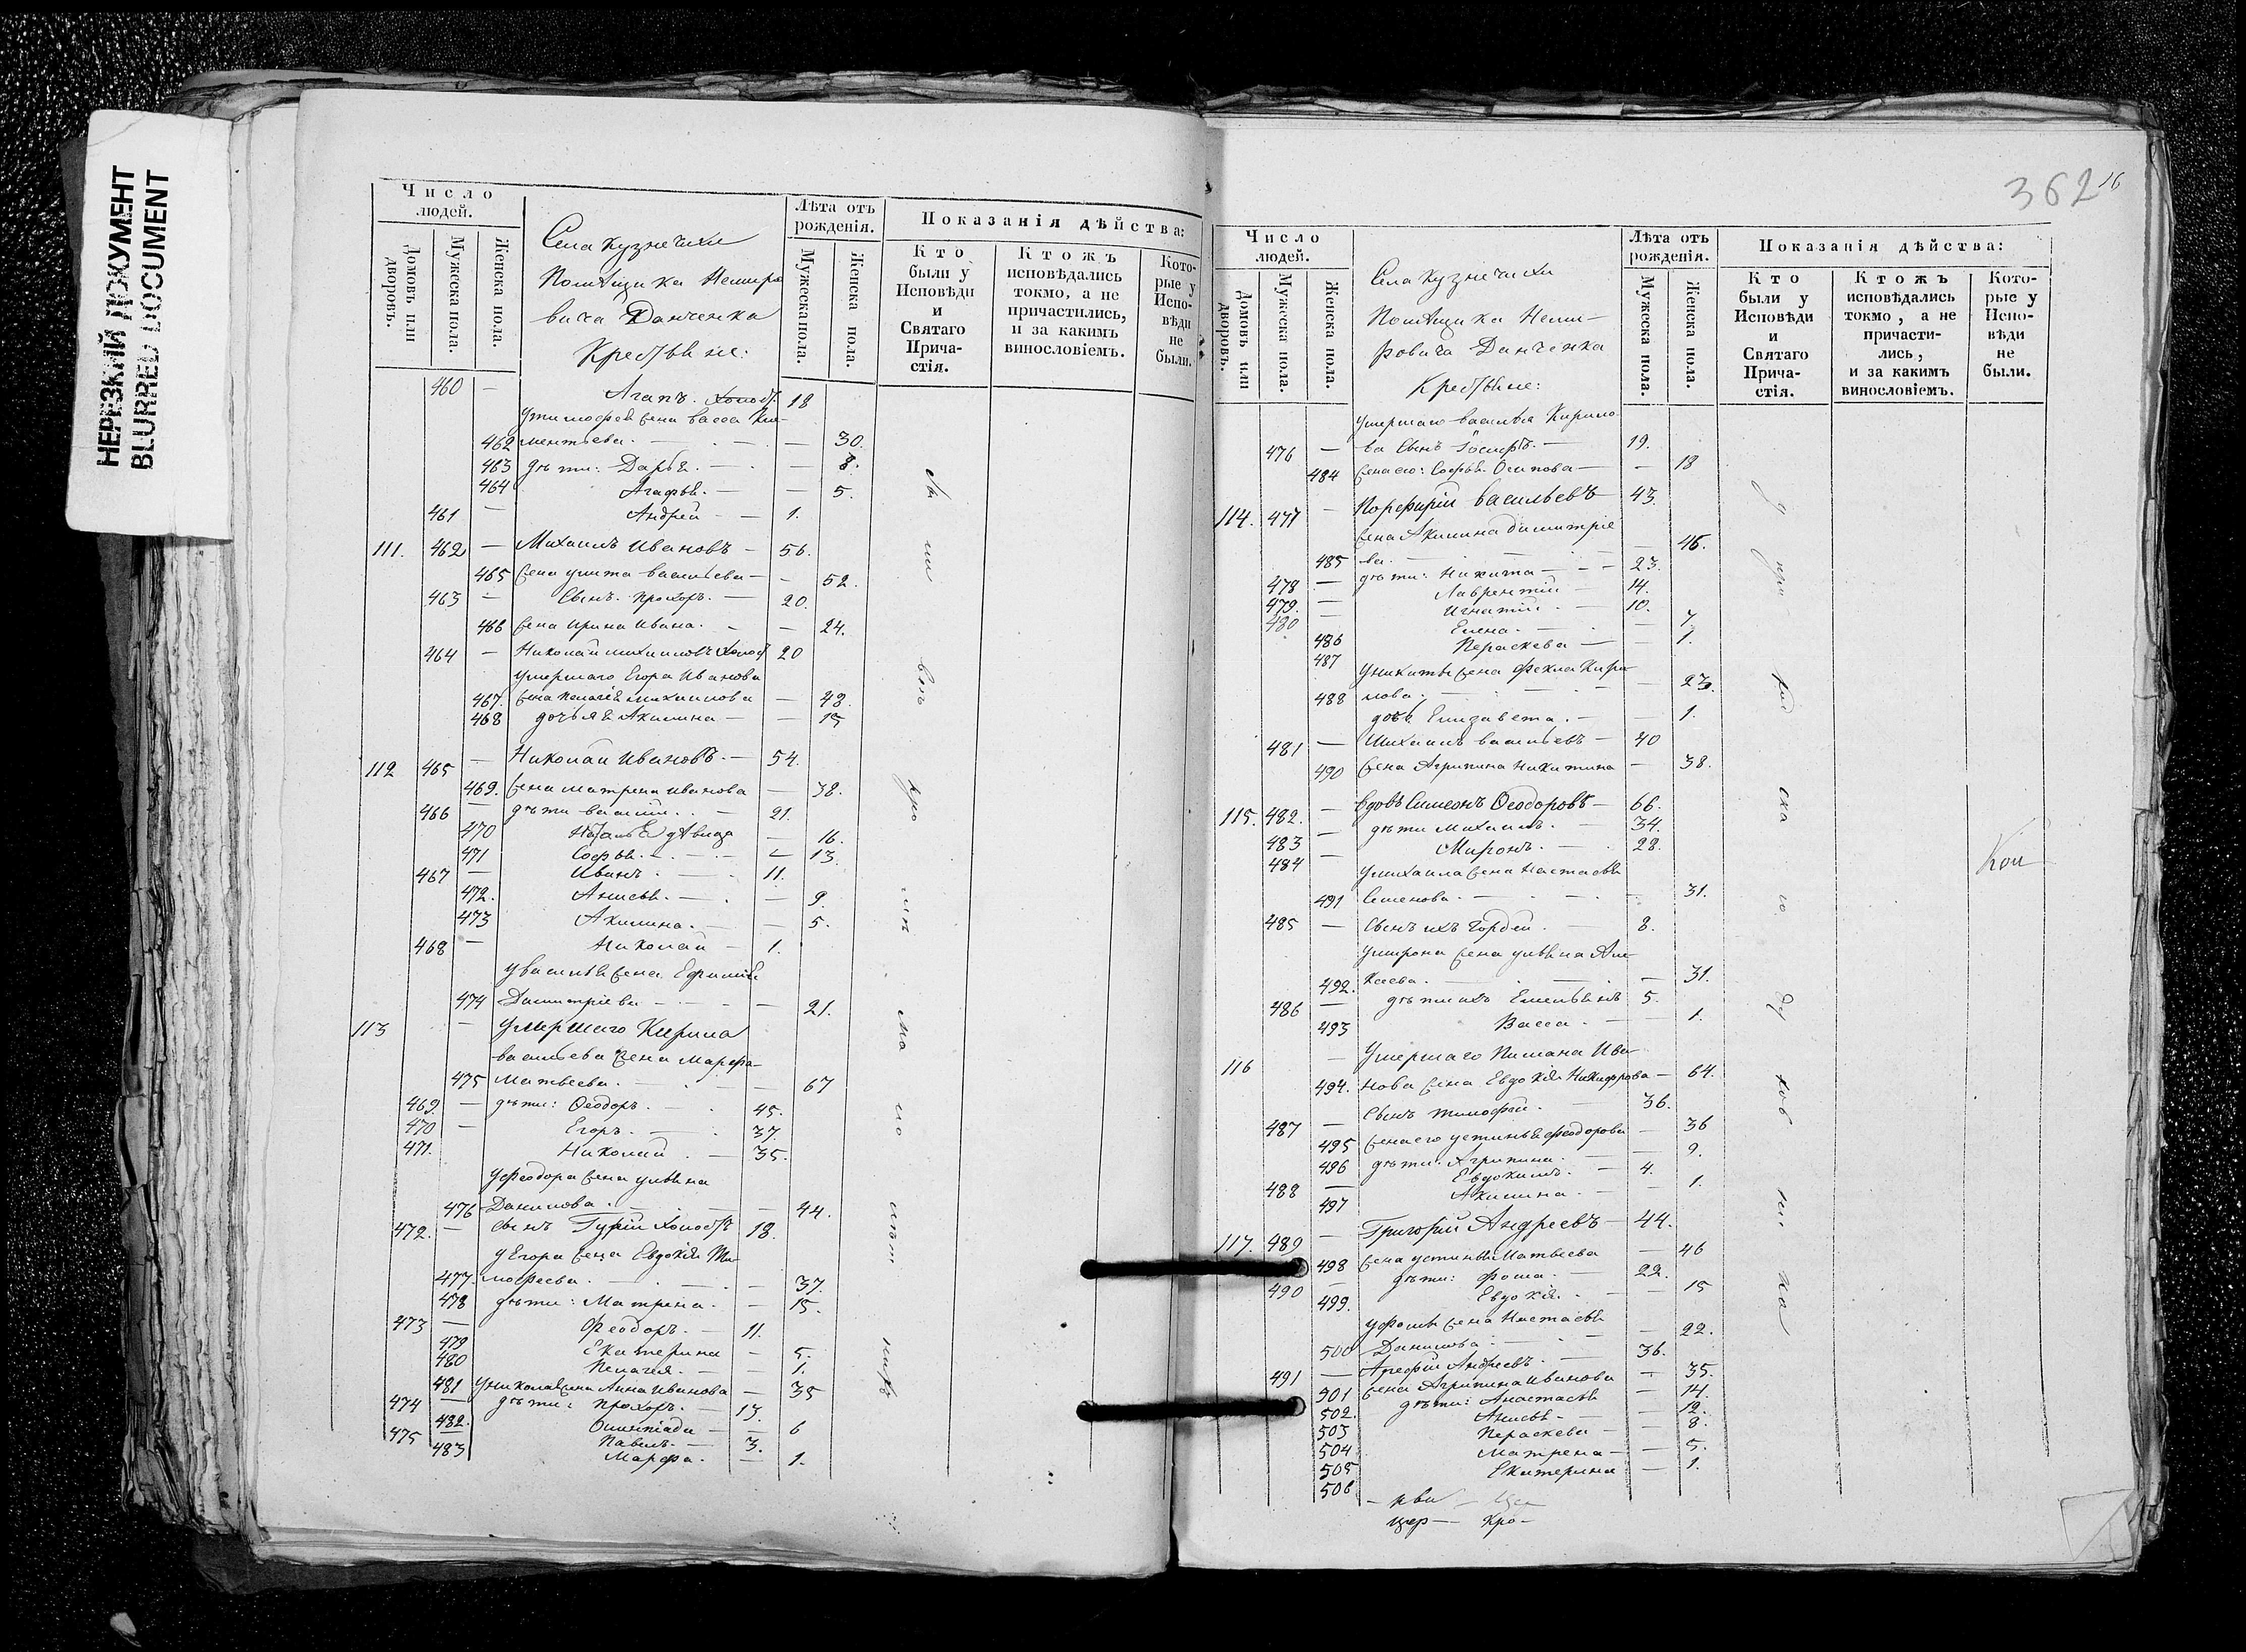 НЕРЕЗКИЙ ДОКУМЕНТ
BLURRED DOCUMENT
Число людей.
Домовъ или дворовъ.
Мужеска пола.
Женска пола.
Села Кузнечихи
Помѣщика Немиро
вича Данченка
Крестьяне:
Лѣта отъ рожденія.
Мужеска пола.
Женска пола.
Показанія дѣйства:
Кто были у Исповѣди и Святаго Причастія.
Ктожъ исповѣдались токмо, а не причастились, и за какимъ винословіемъ.
Которые у Исповѣди не были.
460 — Агапъ. холост. 18
у тимофея жена васса Кли-
462 ментьева. — — 30.
463 дѣти: Дарья. — — 8.
464 Агафья. — — 5.
461 — Андрей — — 1.
111. 462 — Михаилъ Ивановъ — 56.
465 жена улита васильева — — 52.
463 — Сынъ. прохоръ. — 20.
466 жена ирина Ивана. — — 24.
464 — Николай михаиловъ холост 20
умершаго Егора Иванова
467. жена пелагея михаилова — 48.
468 дочь ея Акилина — — 15
112 465 — Николай Ивановъ. — 54.
469. жена матрена иванова — 38.
466 — дѣти василий. . — 21.
470 — 16.
471 Софья. — — 13.
467 — Иванъ. — 11.
472. Анисья. — — 9.
473 Акилина. — — 5.
468 — Николай — 1.
у василья жена Ефимия
474 Димитріева — — — 21.
113 — умершаго Кирила
васильева жена Марфа
475 Матвеева. — — 67
469. — дѣти: Ѳеодоръ. — 45.
470 — Егоръ. — 37.
471. Николай. — 35.
у феодора жена ульяна
476 Данилова. — — 44.
472. — сынъ Гурій холостъ 18.
у Егора жена Евдокія Ти-
477. мофеева. — — 37.
478 дѣти: Матрена. — — 15.
473 — Феодоръ. — 11.
479 Екатерина — 5.
480 Пелагея. — — 1.
481 у николая жена Анна Иванова — 35
474 — дѣти: прохоръ. — 13.
482. Олимпіада — — 6
475 Павелъ. — 3.
483 Марфа. — — 1.
362 16
Число людей.
Домовъ или дворовъ.
Мужеска пола.
Женска пола.
Села Кузнечихи
Помѣщика Неми-
ровича Данченка
Крестьяне:
Лѣта отъ рожденія.
Мужеска пола.
Женска пола.
Показанія дѣйства:
Кто были у Исповѣди и Святаго Причастія.
Ктожъ исповѣдались токмо, а не причастились, и за какимъ винословіемъ.
Которые у Исповѣди не были.
умершаго василья Кирило
476 — ва Сынъ Іосифъ. — 19.
484 жена его: Софья Осипова — — 18
114. 477 — Порфирій васильевъ — 43.
жена Акилина димитріе
485 ва. — — 46.
478 — дѣти: Никита — — 23.
479. — Лаврентій — 14.
480 — Игнатій. — 10.
486 Елена. — — 7
487 Пераскева — — 1.
у никиты жена фекла Кири
488 лова. — — 23.
дочь Елизавета. — — 1.
481 — Михаилъ васильевъ — 40
490 жена Агрипина Никитина — 38.
115. 482. — вдовъ Симеонъ Ѳеодоровъ — 66.
483 — дѣти михаилъ. — 34.
484 — Миронъ. — 28.
у михаила жена Настасья
491 Семенова. — — 31.
485 — Сынъ ихъ Гордей. — 8.
у мирона жена ульяна Але-
492. ксеева. — — 31.
486 — дѣти ихъ Емельянъ 5.
493 Васса. — — 1.
116 — умершаго Пимана Ива-
494. нова жена Евдокія Никифорова — 64.
487 — Сынъ тимофей. — 36.
495 жена его устинья феодорова — 36
496 дѣти: Агрипина. — — 9.
488 — Евдокимъ. — 4.
497 Акилина. — — 1.
117. 489 — Григорій Андреевъ — 44.
498 жена устинья Матвеева — 46
490 — дѣти: фома. — 22.
499. Евдокія. — — 15
у фомы жена Настасья
500 Данилова. — — 22.
491 — Арефій Андреевъ. — 36.
501 жена Агрипина Иванова — 35.
502. дѣти: Анастасья — 14.
503 Анисья — — 12.
504 Пераскева — — 8.
505 Матрена — — 5.
506 Екатерина — 1.
Кои
цер — Кро —